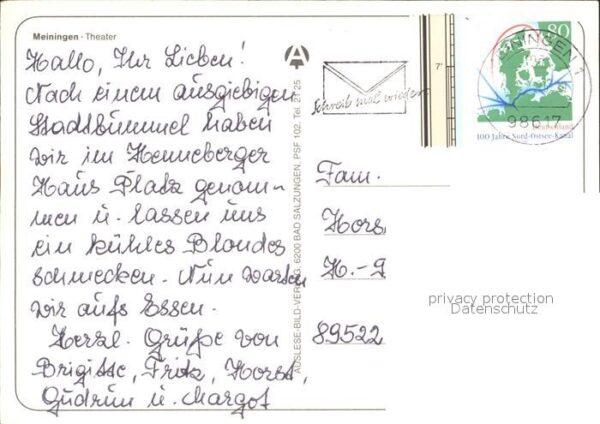 Meiningen · Theater
Hallo, Ihr Lieben!
Nach einem ausgiebigen
Stadtbummel haben
wir im Henneberger
Haus Platz genom-
men u. lassen uns
ein kühles Blondes
schmecken. Nun warten
wir aufs Essen.
Herzl. Grüße von
Brigitte, Fritz, Horst,
Gudrun u. Margot
AUSLESE-BILD-VERLAG, 6200 BAD SALZUNGEN, PSF 102, Tel. 21 25
Schreib mal wieder
7'
80
Deutschland
100 Jahre Nord-Ostsee-Kanal
MEININGEN 1
98617
Fam.
Hors
H.-G
89522
privacy protection
Datenschutz